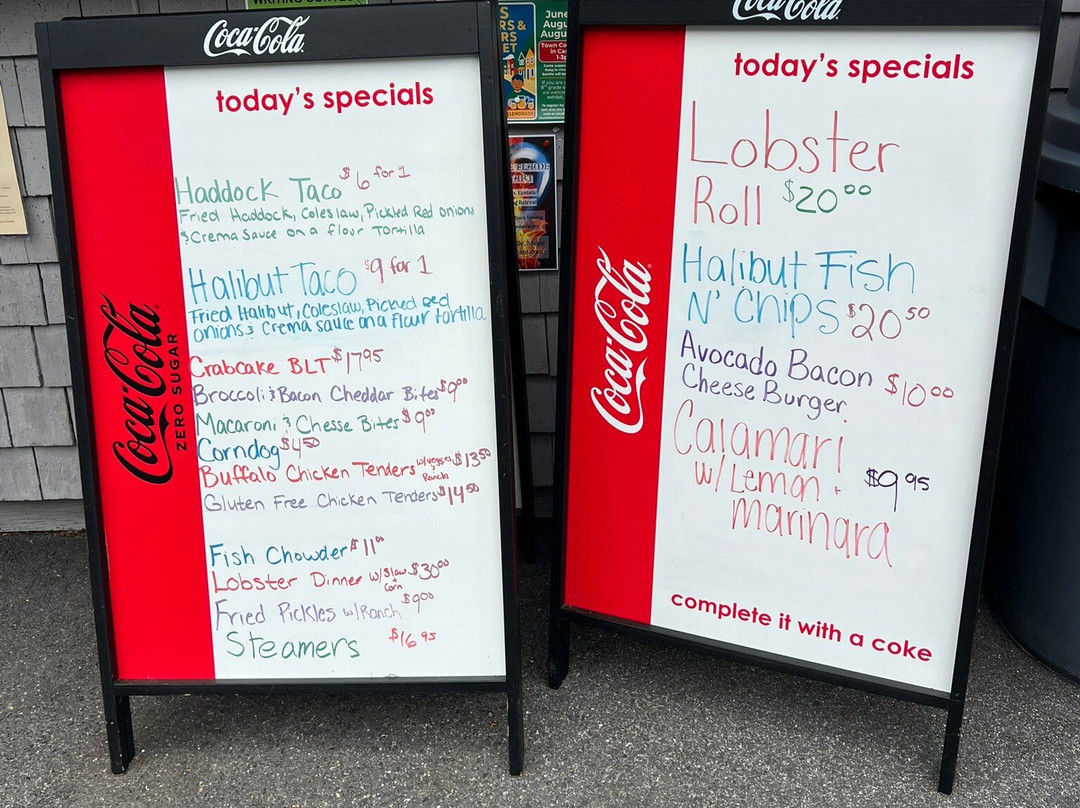 Coca-Cola
today's specials
Haddock Taco $6 for 1
Fried Haddock, Coleslaw, Pickled Red onions
& Crema sauce on a flour Tortilla
Halibut Taco $9 for 1
Fried Halibut, Coleslaw, Pickled Red
onions & Crema sauce on a flour tortilla
Crabcake BLT $17.95
Broccoli & Bacon Cheddar Bites $9.00
Macaroni & Chesse Bites $9.00
Corndog $4.50
Buffalo Chicken Tenders $13.50
Ranch
Gluten Free Chicken Tenders $14.50
Fish Chowder $11.00
Lobster Dinner w/Slaw $30.00
+ Corn
Fried Pickles w/Ranch $9.00
Steamers $16.95
Coca-Cola
ZERO SUGAR
Coca-Cola
today's specials
Lobster
Roll $20.00
Halibut Fish
N' Chips $20.50
Avocado Bacon
Cheese Burger $10.00
Calamari
w/Lemon + $9.95
marinara
Coca-Cola
complete it with a coke